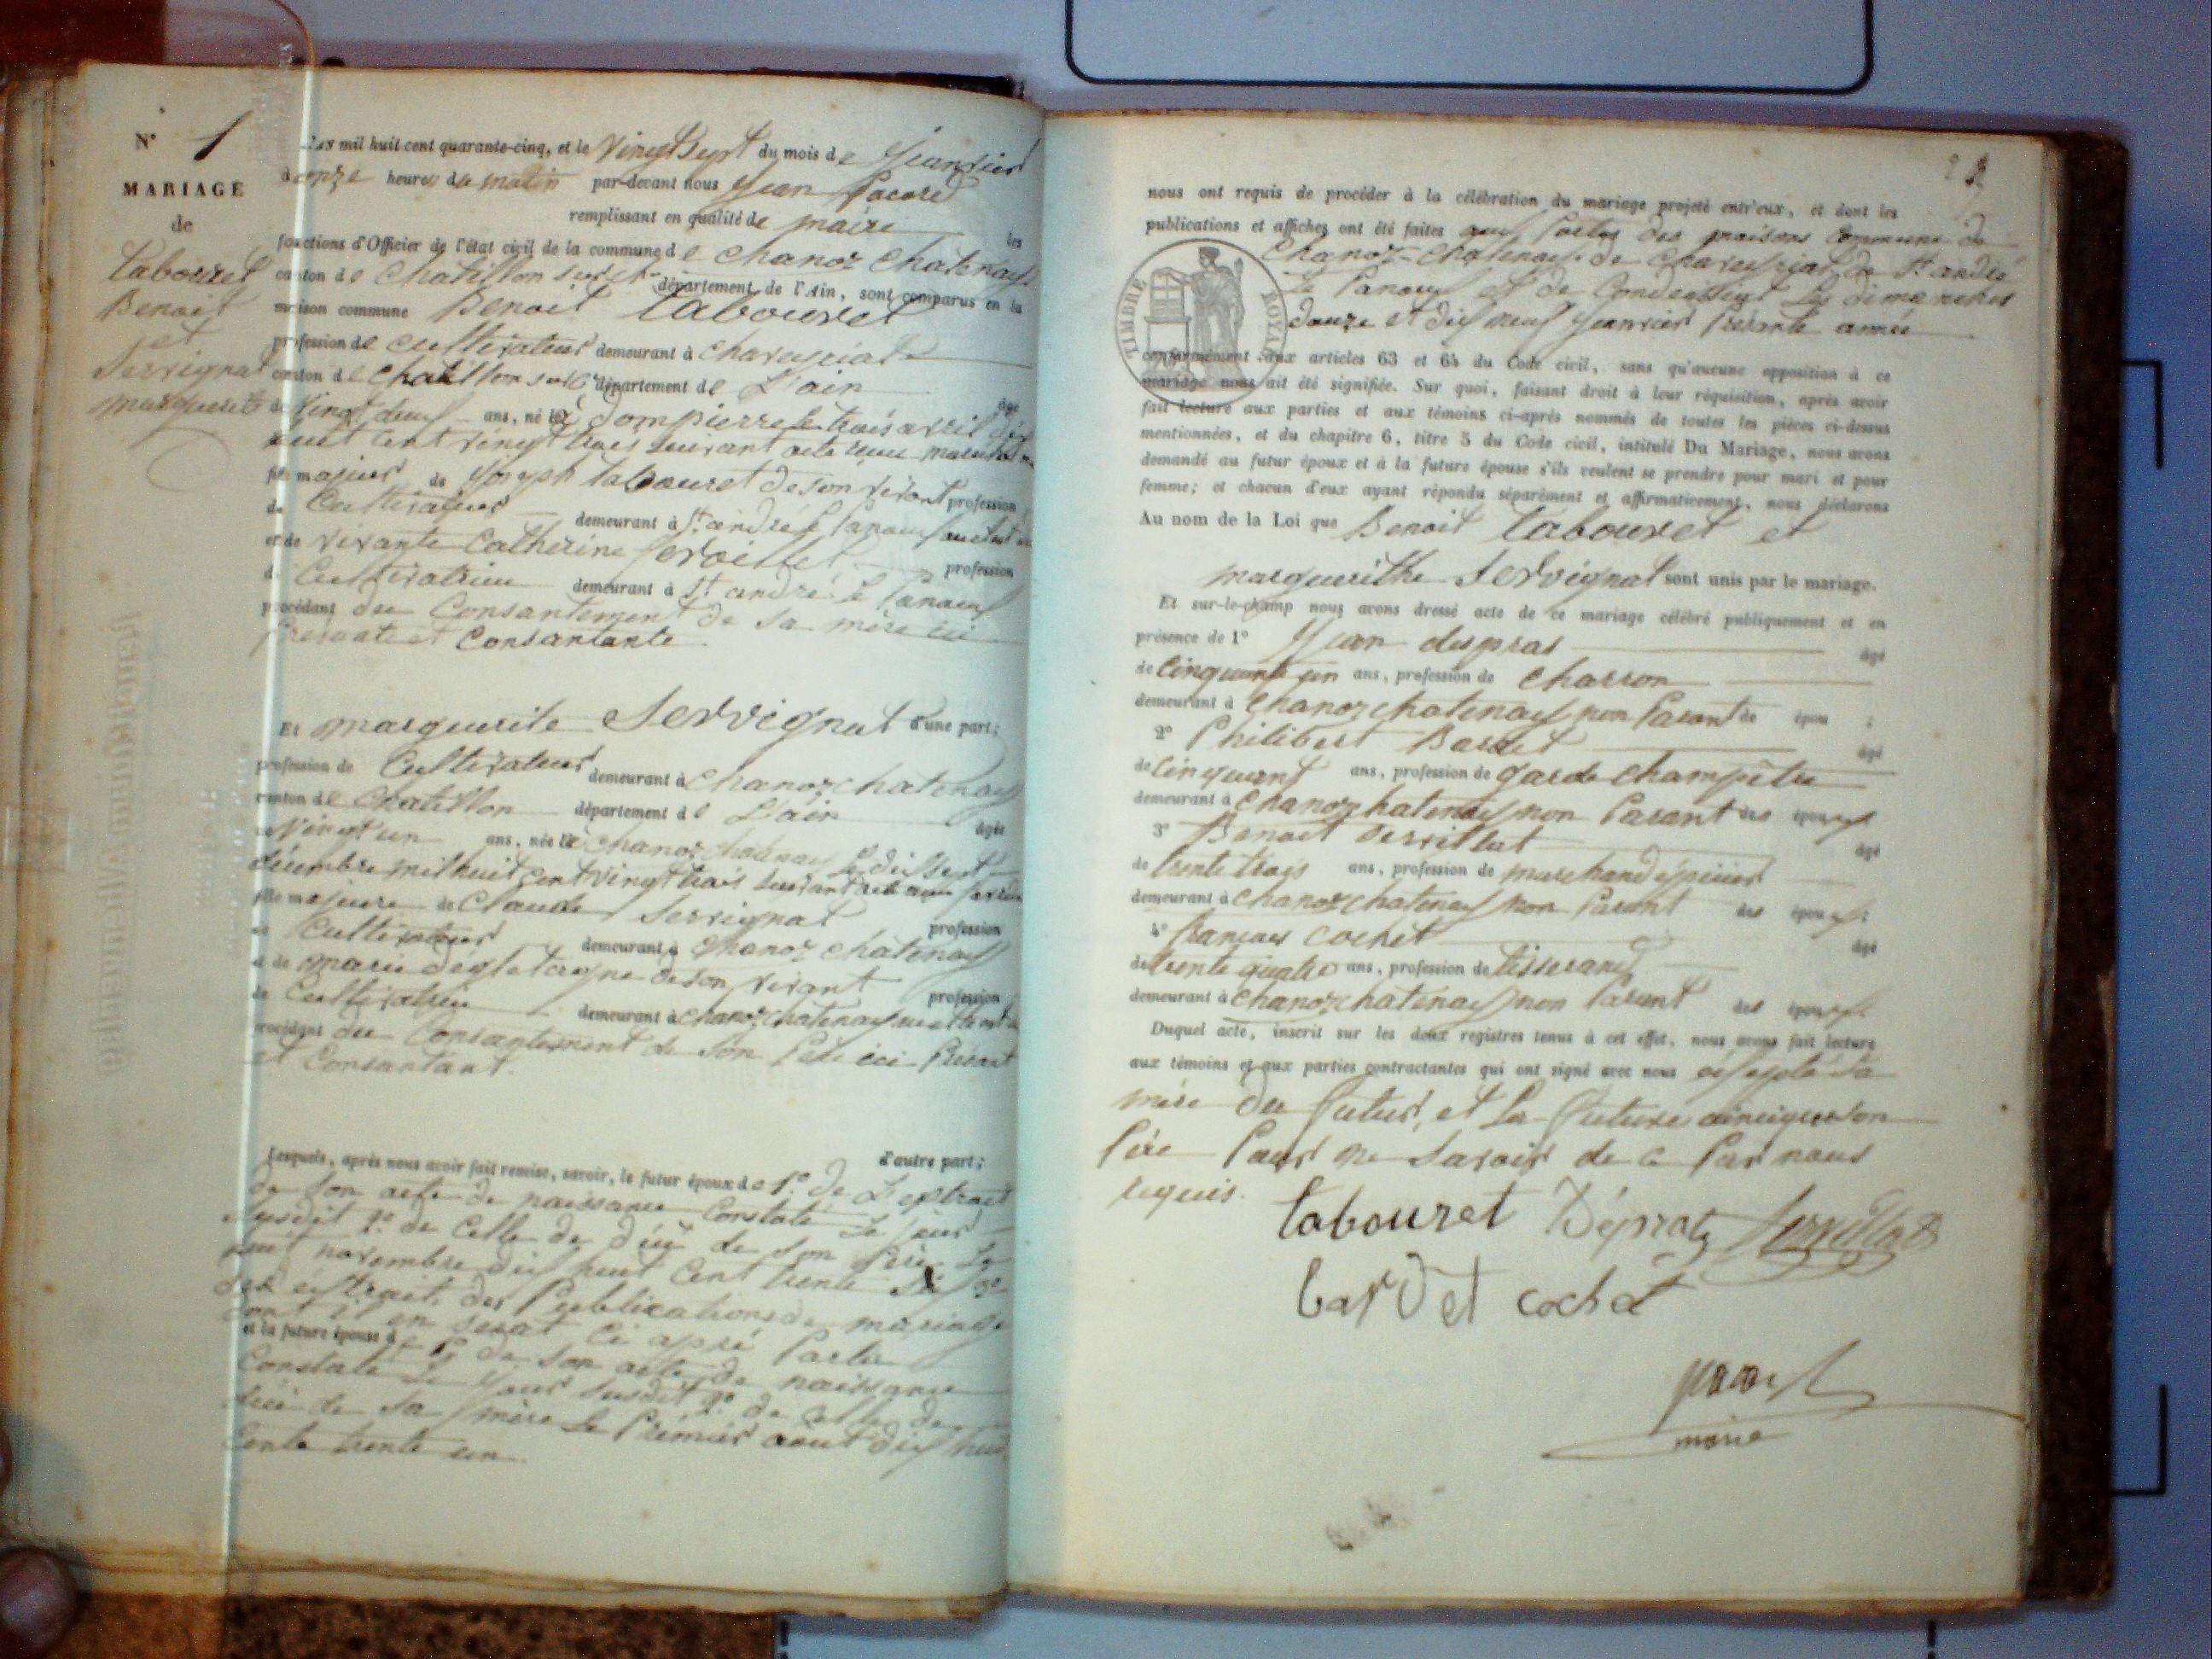 N° 1
MARIAGE
de
tabouret
Benoit
et
Servignat
marguerite
L'an mil huit cent quarante-cinq, et le vingt Sept du mois de Janvier
à onze heures du matin par-devant nous Jean Pacard
remplissant en qualité de maire les
fonctions d'Officier de l'état civil de la commune de Chanoz Chatenay
canton de Chatillon sur département de l'Ain, sont comparus en la
maison commune Benoit tabouret
profession de cultivateur demeurant à chaveyriat
canton de Chatillon sur département de L'ain
âgé
de vingt deux ans, né à dompierre le trois avril dix
huit cent vingt trois suivant acte
fils majeur de Joseph tabouret de son vivant profession
de Cultivateur demeurant à St andré le Panoux
et de vivante Catherine profession
de Cultivatrice demeurant à St andré le Panoux
procédant du Consantement de sa mère ici
présente et Consantante
Et marguerite Servignat d'une part;
profession de Cultivateur demeurant à Chanoz chatenay
canton de Chatillon département de L'ain
âgée
vingt un ans, née à Chanoz chatenay le dix Sept
décembre mil huit cent vingt trois suivant acte
fille majeure de Claude Servignat profession
de Cultivateur demeurant à Chanoz chatenay
et de marie de son vivant profession
de Cultivatrice demeurant à Chanoz chatenay
procédant du Consantement de Son Père ici Présant
et Consantant.
d'autre part;
Lesquels, après nous avoir fait remise, savoir, le futur époux de 1° de L'extrait
de Son acte de naissance Constaté Le jour
susdit 2° de Celle de de Son Père Le
novembre dix huit Cent trente Six 3°
des extraits des Publications de mariage
dont il en serat Ci après Parlée
et la future épouse de 1° de Son acte de naissance
Constaté Le Jour susdit 2° de Celle de
de Sa mère Le Premier août dix huit
Cents trente un
nous ont requis de procéder à la célébration du mariage projeté entr'eux, et dont les
publications et affiches ont été faites aux Portes des maisons Commune de
Chanoz-Chatenay de Chaveyriat de St andré
Le Panoux et de Condeissiat Les dimanches
douze et dix neuf Janvier Présante année
TIMBRE ROYAL
conformément aux articles 63 et 64 du Code civil, sans qu'aucune opposition à ce
mariage nous ait été signifiée. Sur quoi, faisant droit à leur réquisition, après avoir
fait lecture aux parties et aux témoins ci-après nommés de toutes les pièces ci-dessus
mentionnées, et du chapitre 6, titre 5 du Code civil, intitulé Du Mariage, nous avons
demandé au futur époux et à la future épouse s'ils veulent se prendre pour mari et pour
femme; et chacun d'eux ayant répondu séparément et affirmativement, nous déclarons
Au nom de la Loi que Benoit tabouret et
marguerithe Servignat sont unis par le mariage.
Et sur-le-champ nous avons dressé acte de ce mariage célébré publiquement et en
présence de 1° Jean despras âgé
de Cinquante un ans, profession de Charron
demeurant à Chanoz chatenay non Parant de épou ;
2° Philibert Bardet âgé
de Cinquant ans, profession de garde champêtre
demeurant à Chanoz chatenay non Parant des époux
3° Benoit Servillat âgé
de trente trois ans, profession de marchand épicier
demeurant à Chanoz chatenay non Parant des époux;
4° français Cochet âgé
de trente quatre ans, profession de tisserand
demeurant à Chanoz chatenay non Parant des époux
Duquel acte, inscrit sur les deux registres tenus à cet effet, nous avons fait lecture
aux témoins et aux parties contractantes qui ont signé avec nous excepté la
mère du futur, et La future ainsi que son
Père Pour ne Savoir de ce Par nous
requis.
tabouret Dépras Servillat
bardet cochet
maire